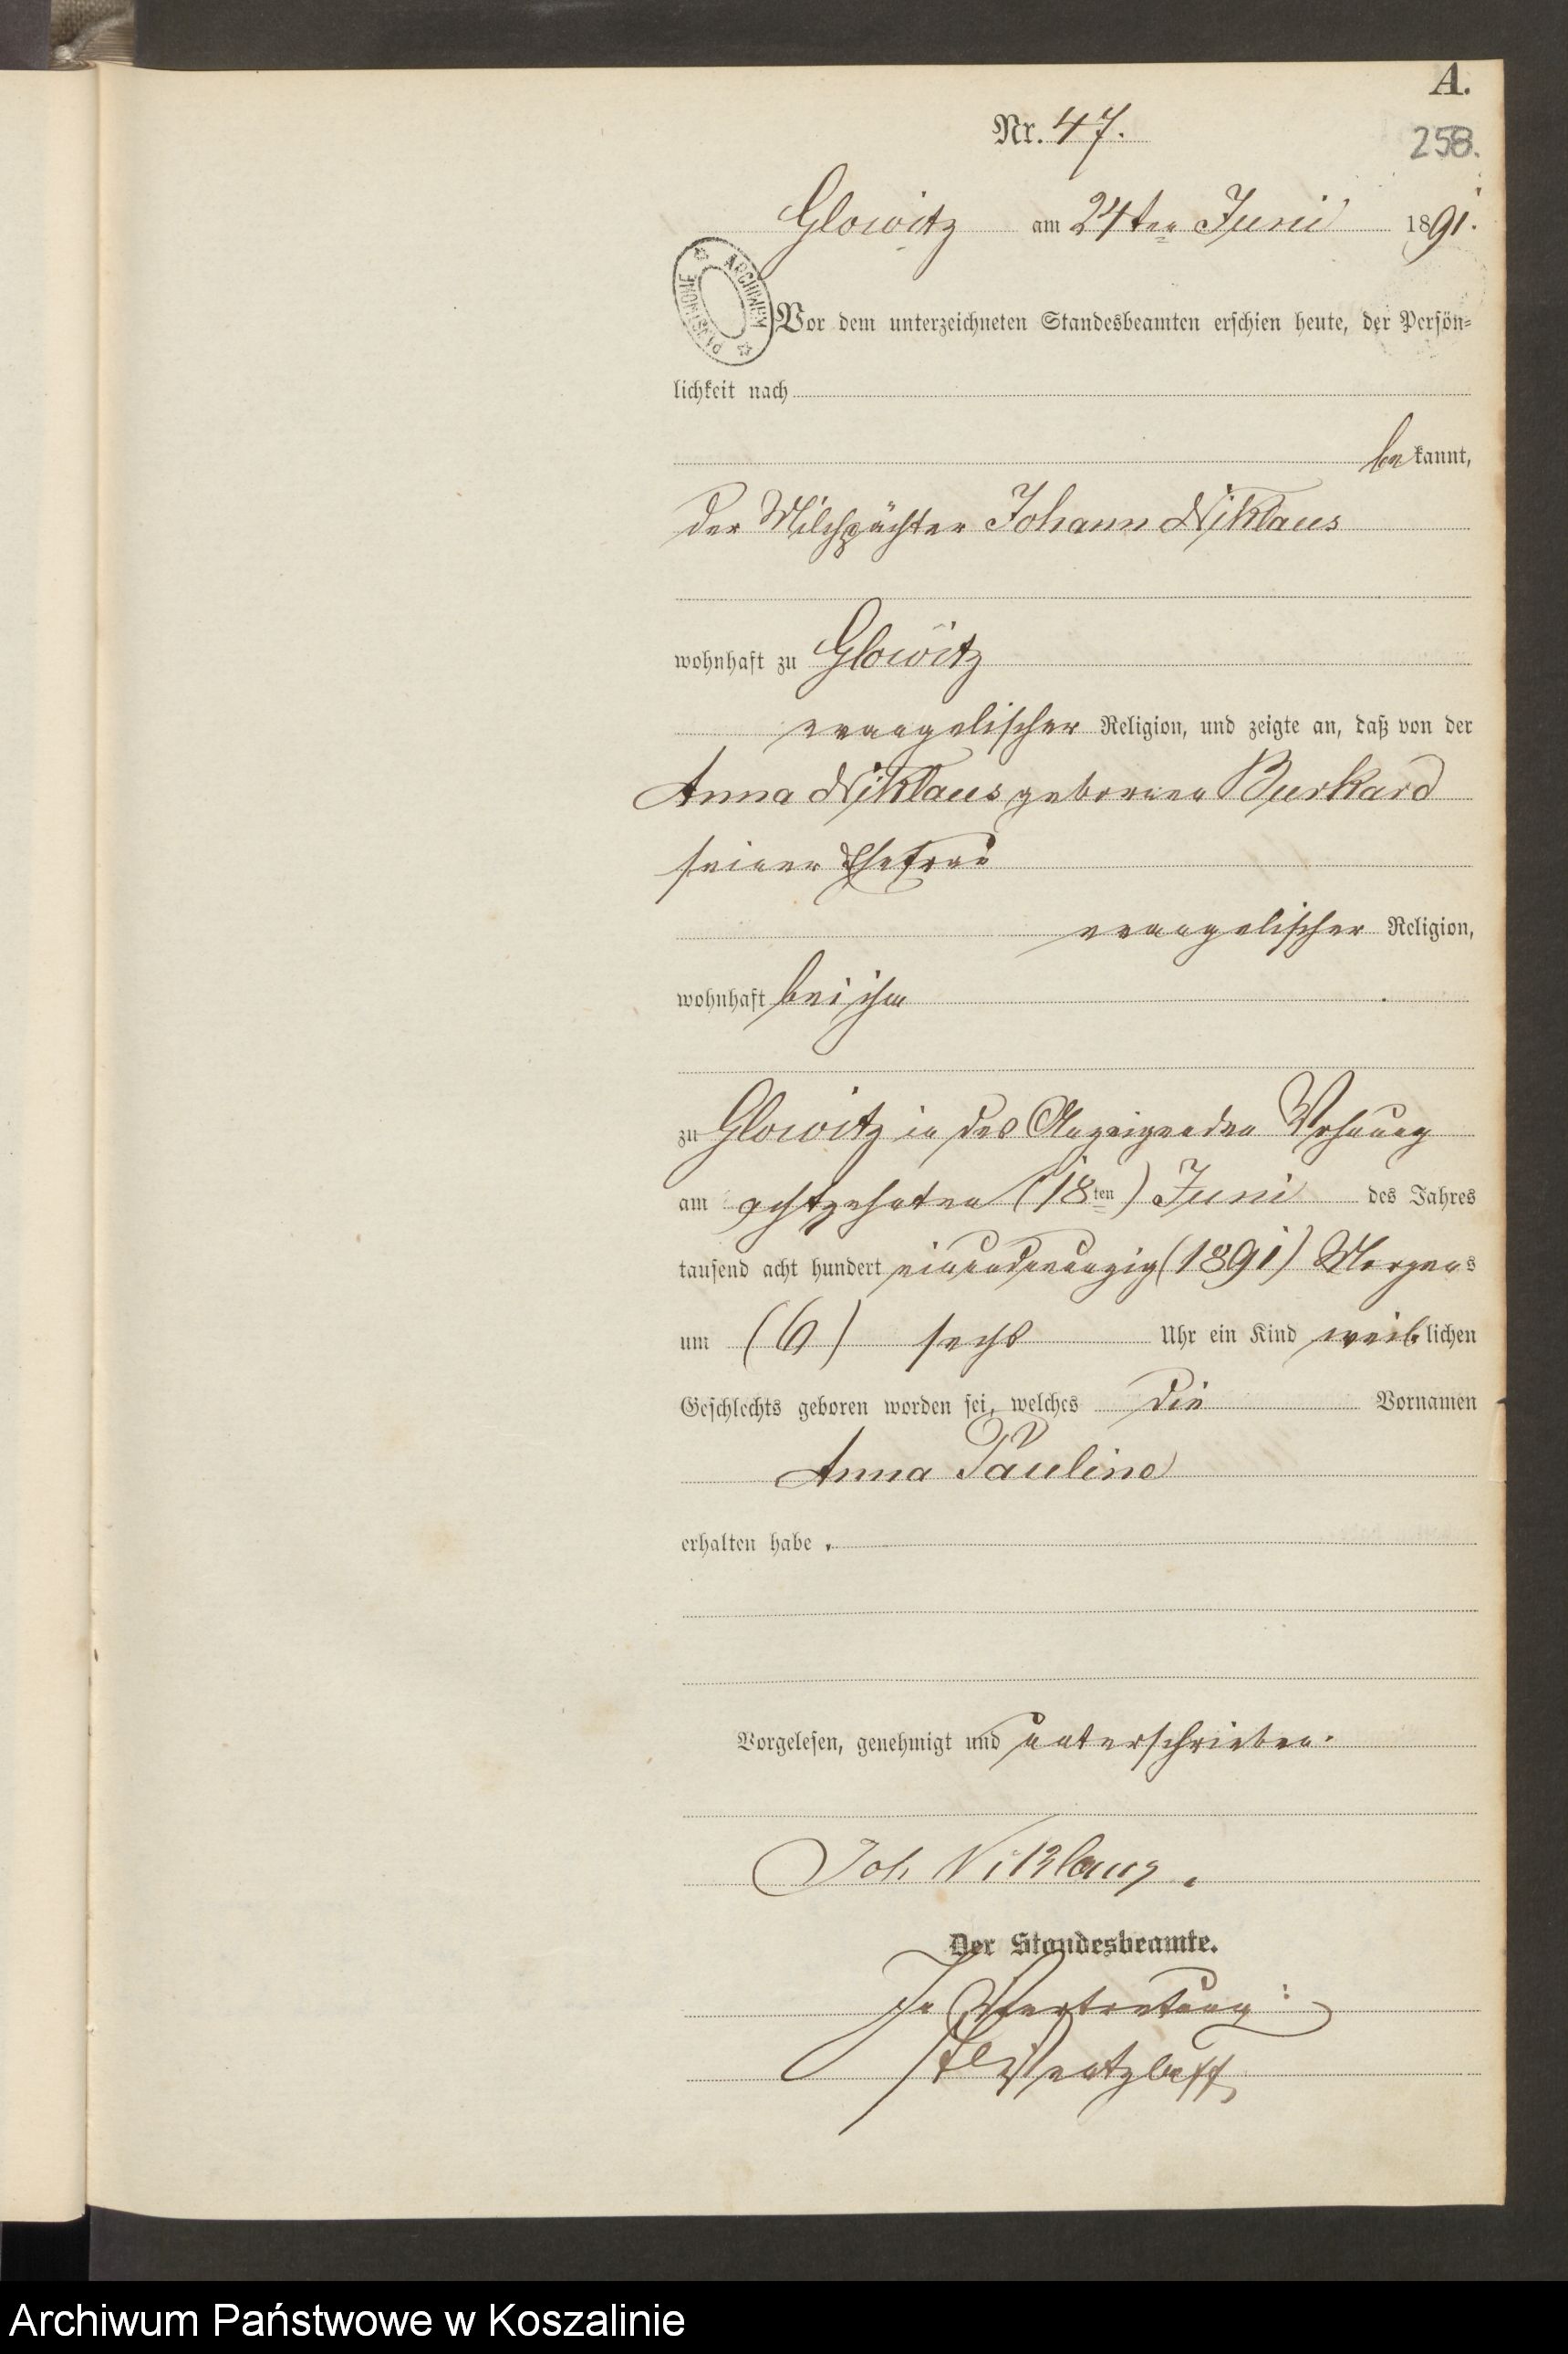 A.
Nr. 47.
258.
Glowitz am 24ten Juni 1891.
ARCHIWUM PAŃSTWOWE
Vor dem unterzeichneten Standesbeamten erschien heute, der Persön-
lichkeit nach
bekannt,
der Milchpächter Johann Niklaus
wohnhaft zu Glowitz
evangelischer Religion, und zeigte an, daß von der
Anna Niklaus geborenen Burkard
seiner Ehefrau
evangelischer Religion,
wohnhaft bei ihm
zu Glowitz in des Anzeigenden Wohnung
am achtzehnten (18ten) Juni des Jahres
tausend acht hundert einundneunzig (1891) Morgens
um (6) sechs Uhr ein Kind weiblichen
Geschlechts geboren worden sei, welches die Vornamen
Anna Pauline
erhalten habe.
Vorgelesen, genehmigt und unterschrieben.
Joh Niklaus.
Der Standesbeamte.
In Vertretung:
Archiwum Państwowe w Koszalinie